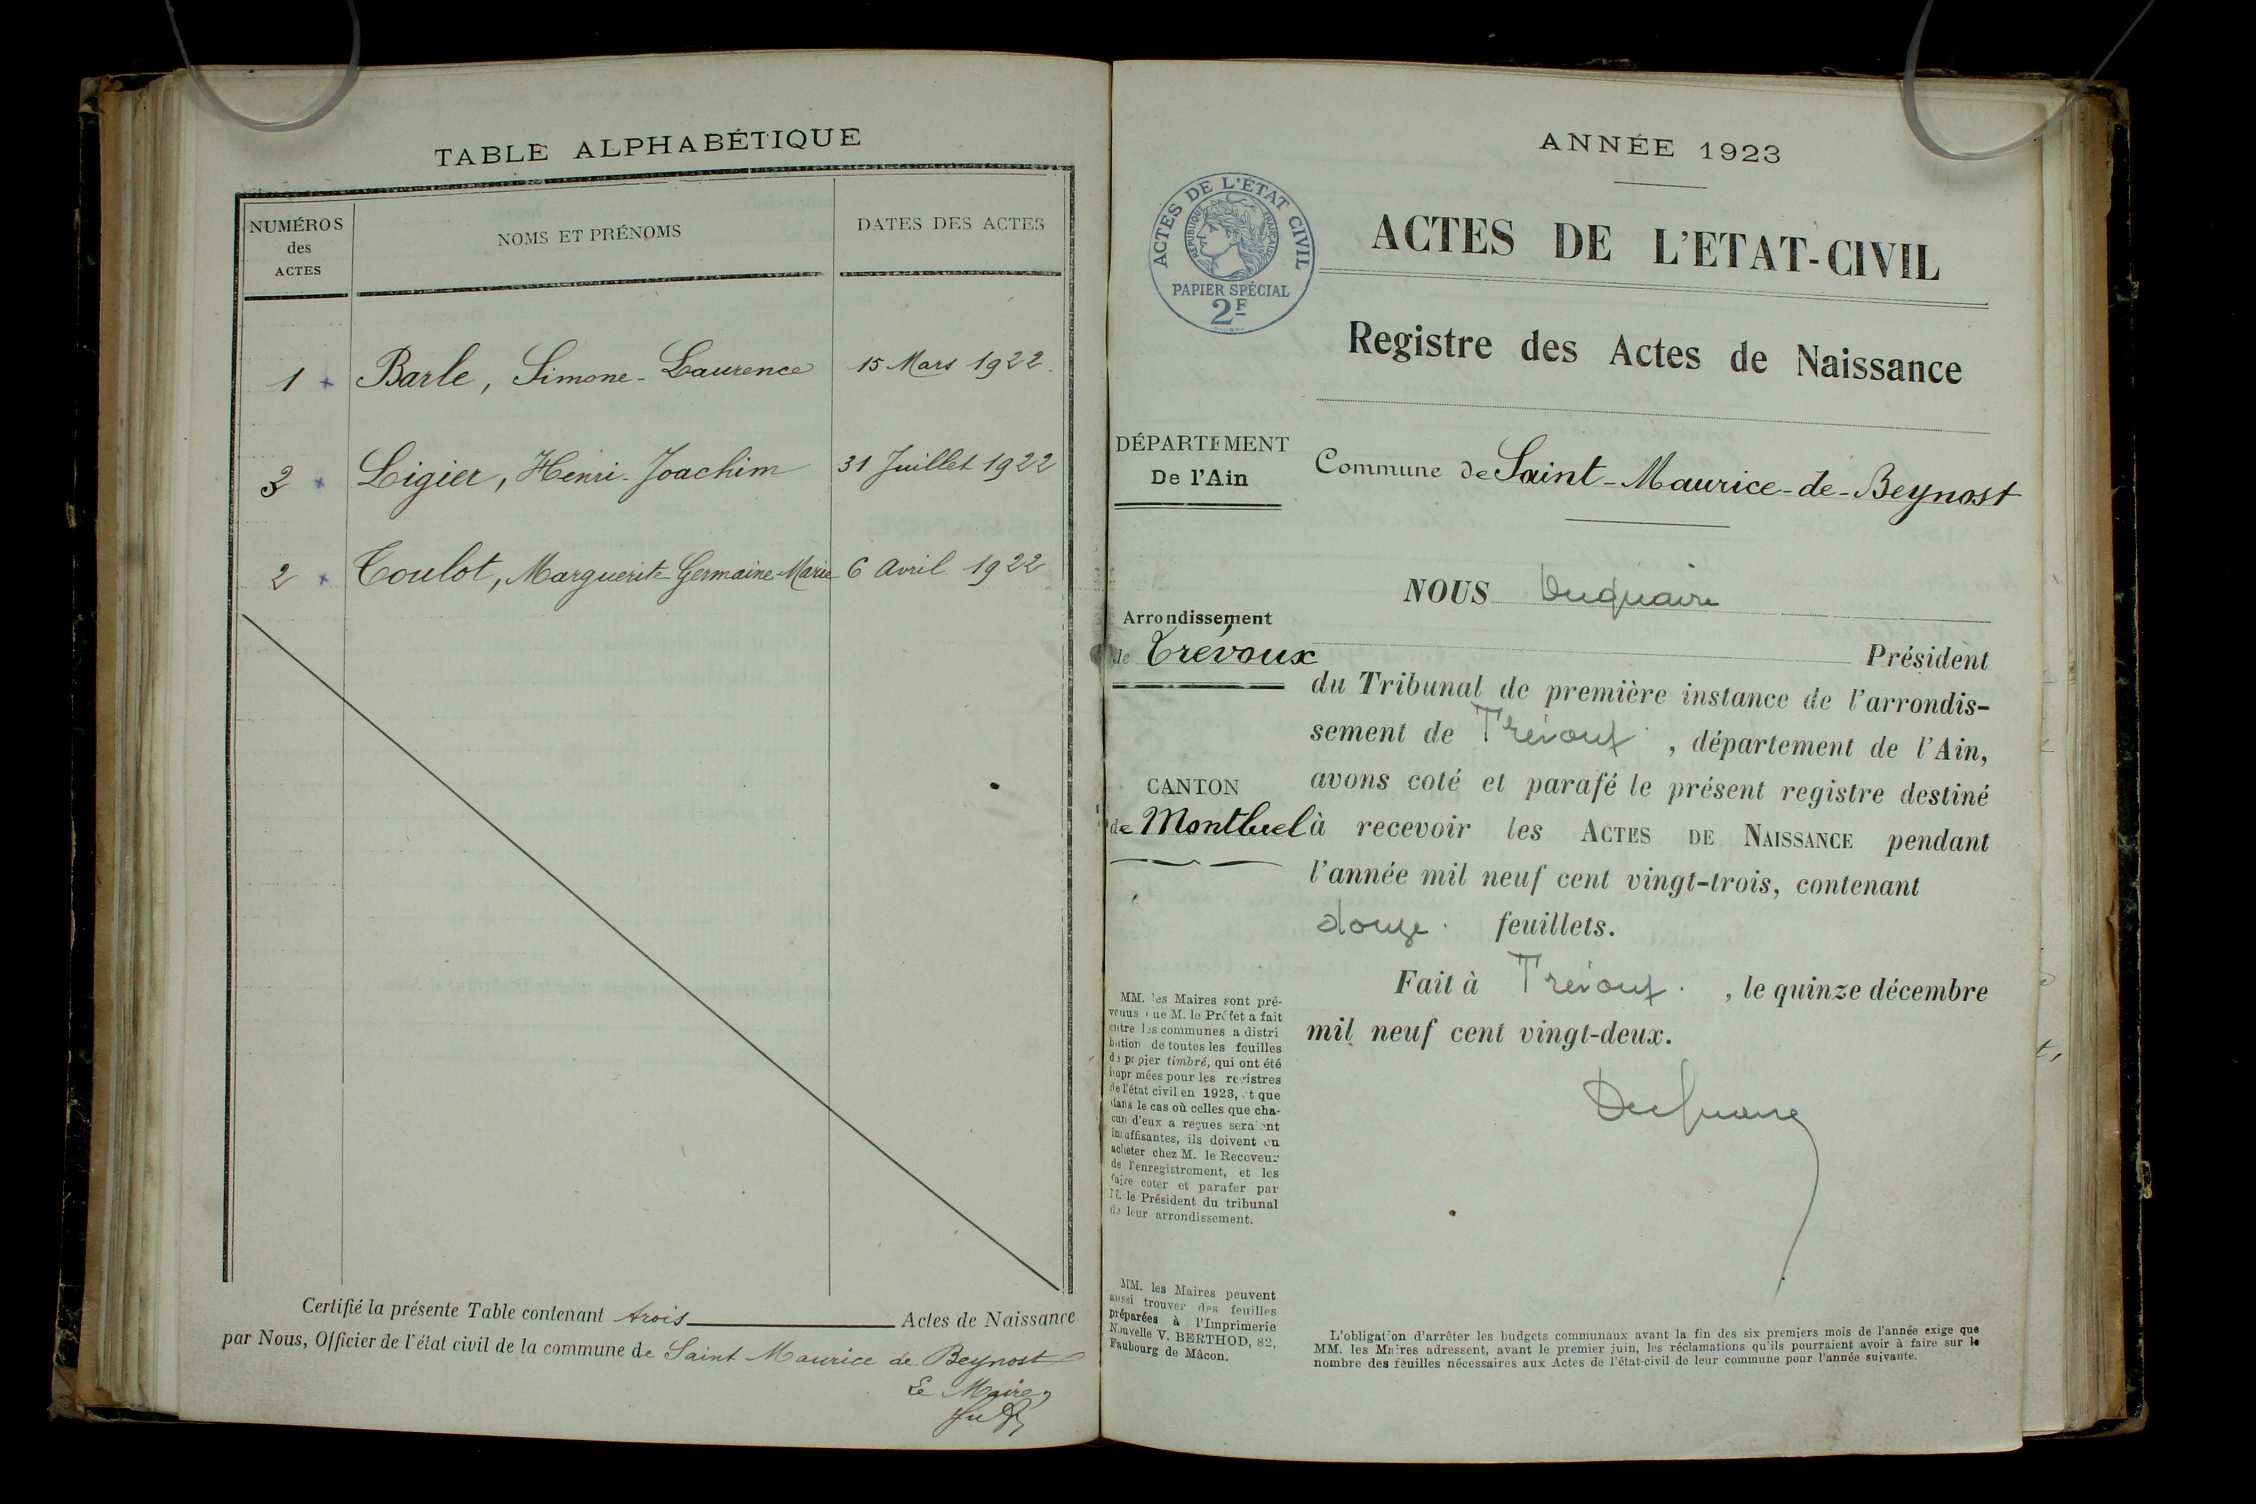 TABLE ALPHABÉTIQUE
NUMÉROS
des
ACTES
NOMS ET PRÉNOMS
DATES DES ACTES
1 Barle, Simone-Laurence 15 Mars 1922.
3 Ligier, Henri-Joachim 31 Juillet 1922
2 Coulot, Marguerite-Germaine-Marie 6 Avril 1922
Certifié la présente Table contenant trois Actes de Naissance
par Nous, Officier de l'état civil de la commune de Saint Maurice de Beynost
Le Maire,
ANNÉE 1923
ACTES DE L'ÉTAT CIVIL
RÉPUBLIQUE FRANÇAISE
PAPIER SPÉCIAL
2F
ACTES DE L'ETAT-CIVIL
Registre des Actes de Naissance
DÉPARTEMENT
De l'Ain
Commune de Saint-Maurice-de-Beynost
Arrondissement
de Trévoux
CANTON
de Montluel
NOUS Duquaire
Président
du Tribunal de première instance de l'arrondis-
sement de Trévoux, département de l'Ain,
avons coté et parafé le présent registre destiné
à recevoir les ACTES DE NAISSANCE pendant
l'année mil neuf cent vingt-trois, contenant
douze feuillets.
Fait à Trévoux, le quinze décembre
mil neuf cent vingt-deux.
Duquaire
MM. les Maires sont pré-
venus que M. le Préfet a fait
entre les communes a distri
bution de toutes les feuilles
de papier timbré, qui ont été
imprimées pour les registres
de l'état civil en 1923, et que
dans le cas où celles que cha-
cun d'eux a reçues seraient
insuffisantes, ils doivent en
acheter chez M. le Receveur
de l'enregistrement, et les
faire coter et parafer par
M. le Président du tribunal
de leur arrondissement.
MM. les Maires peuvent
aussi trouver des feuilles
préparées à l'Imprimerie
Nouvelle V. BERTHOD, 82,
Faubourg de Mâcon.
L'obligation d'arrêter les budgets communaux avant la fin des six premiers mois de l'année exige que
MM. les Maires adressent, avant le premier juin, les réclamations qu'ils pourraient avoir à faire sur le
nombre des feuilles nécessaires aux Actes de l'état-civil de leur commune pour l'année suivante.